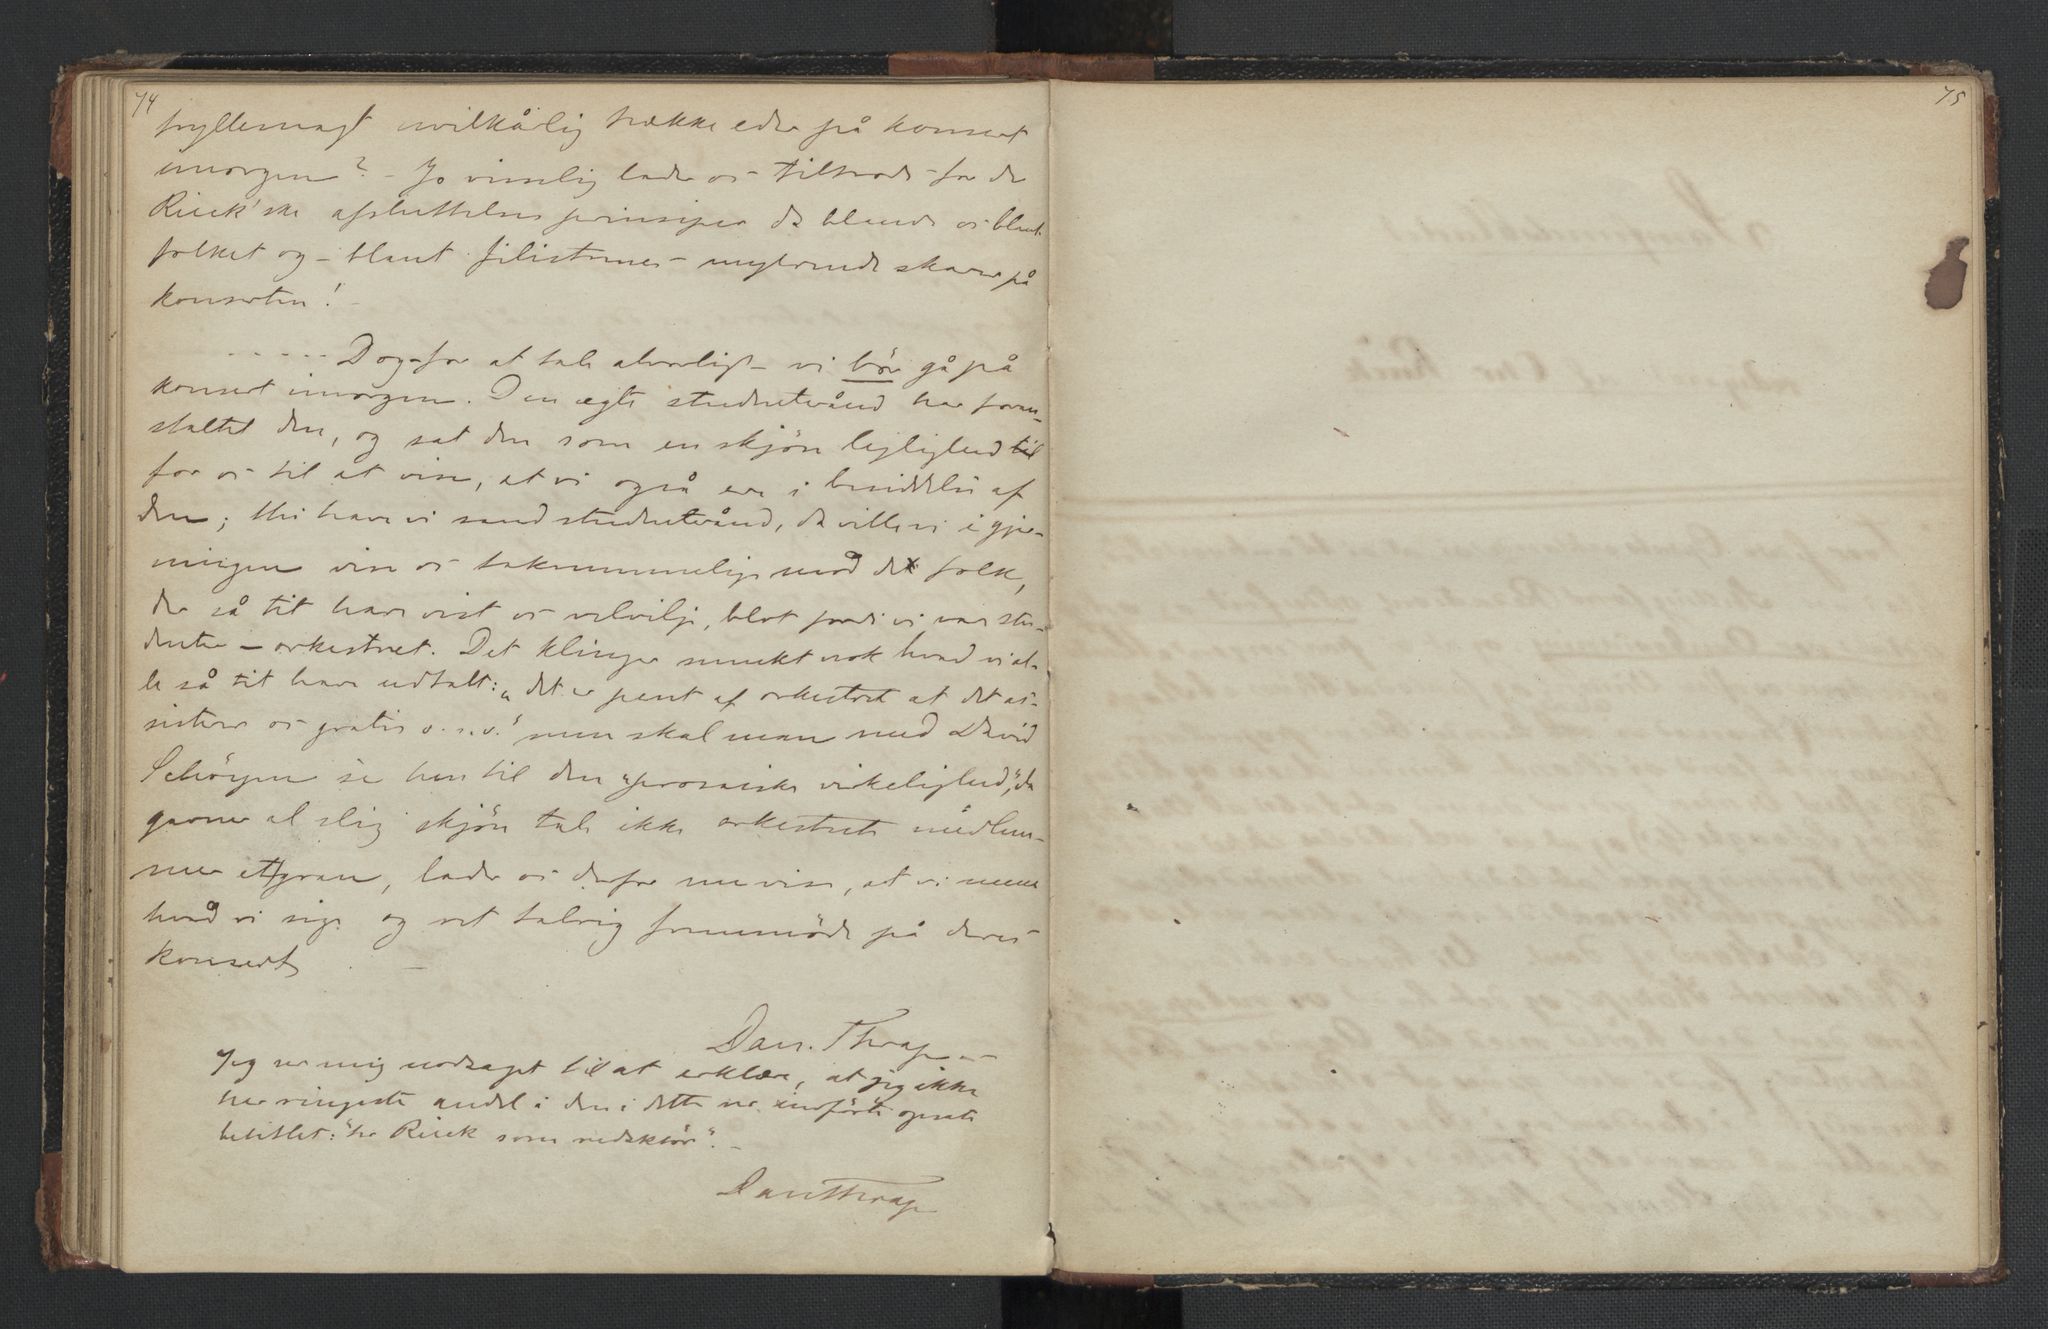 74
tryllemagt uvilkårlig trække eder på konsert
imorgen? – Jo visselig lader os tiltrods for de
Rieck'ske afsluttelses prinsiper da blande os blant
folket og – blant filistrenes – myldrende skarer på
konserten! –
..... Dog for at tale alvorligt – vi bör gå på
konsert imorgen. Den ægte studenterånd har foran-
staltet den, og sat den som en skjön lejlighed til
for os til at vise, at vi også ere i besiddelse af
den; thi have vi sand studenterånd, da ville vi i gjer-
ningen vise os taknemmelige mod de folk,
der så tit have vist os velvilje, blot fordi vi var stu-
denter – orkestret. Det klinger smukt nok hvad vi al-
le så tit have udtalt: „det er pent af orkestret at det as-
sisterer os gratis o.s.v.“ men skal man med David
Schöyen se hen til den „prosaiske virkelighed,“ da
gavner al slig skjön tale ikke orkestrets medlem-
mer et gran, lader os derfor nu vise, at vi mene
hvad vi sige og ret talrig fremmöde på deres
konsert –
Dan. Thrap –
Jeg ser mig nødsaget til at erklære, at jeg ikke
har ringeste andel i den i dette nr. indförte opsats
betitlet: "hr Rieck som redaktör". –
Dan Thrap
75